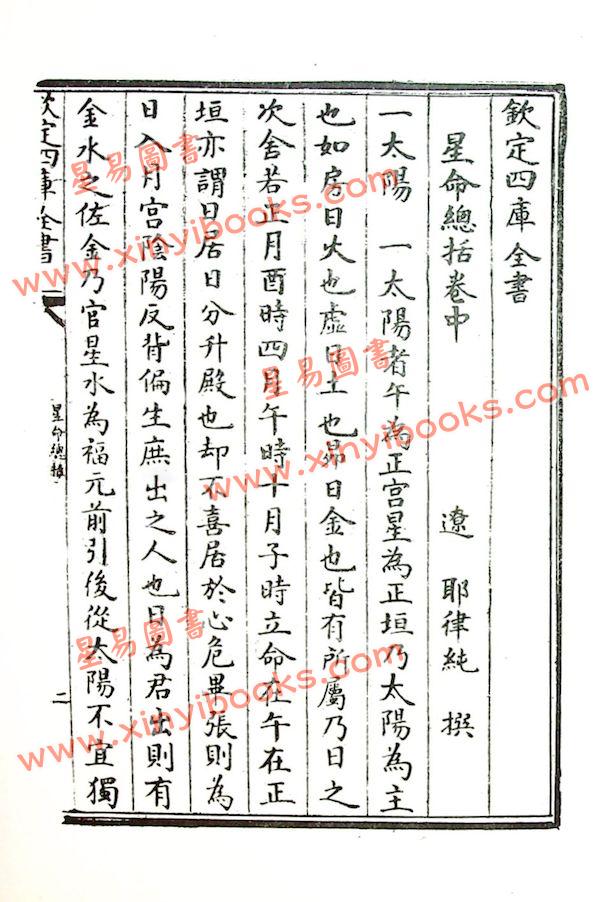 欽定四庫全書
星命總括卷中　遼　耶律純　撰
一太陽　一太陽者午為正宫星為正垣乃太陽為主
也如房日火也虚日土也昴日金也皆有所屬乃日之
次舍若正月酉時四月午時十月子時立命在午在正
垣亦謂日居日分升殿也却不喜居於心危畢張則為
日入月宫陰陽反背偏生庶出之人也日為君出則有
金水之佐金乃官星水為福元前引後從太陽不宜獨
欽定四庫全書
星命總括
二
星易圖書
www.xinyibooks.com
星易圖書
www.xinyibooks.com
星易圖書
www.xinyibooks.com